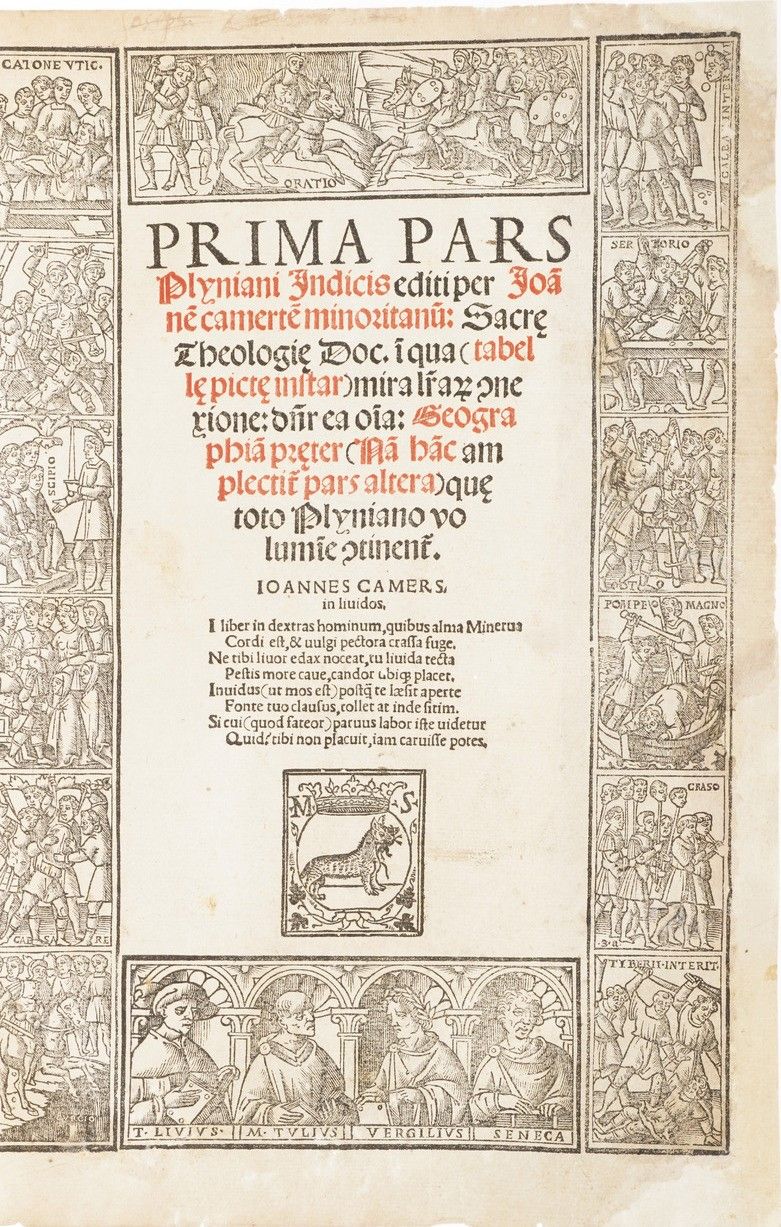 CATONE VTIC.
ORATIO
CILEA INTERIT
PRIMA PARS
Plyniani Indicis editi per Joã
nẽ camertẽ minoritanũ: Sacrę
Theologię Doc. ĩ qua (tabel
lę pictę instar) mira lr̃aꝝ ↄne
xione: dñr ea oĩa: Geogra
phiã pręter (Nã hãc am
plectit̃ pars altera) quę
toto Plyniano vo
lumĩe ↄtinent̃.
SERTORIO
SCIPIO
IOANNES CAMERS,
in liuidos,
I liber in dextras hominum, quibus alma Minerua
Cordi est, & uulgi pectora crassa fuge.
Ne tibi liuor edax noceat, tu liuida tecta
Pestis more caue, candor ubiqꝫ placet.
Inuidus (ut mos est) postq̃ te læsit aperte
Fonte tuo clausus, tollet at inde sitim.
Si cui (quod fateor) paruus labor iste uidetur
Quid? tibi non placuit, iam caruisse potes,
POMPEVO MAGNO
M S
CRASO
CAESARE
3·a
TYBERII·INTERIT.
T· LIVIVS· M· TVLIVS VERGILIVS SENECA